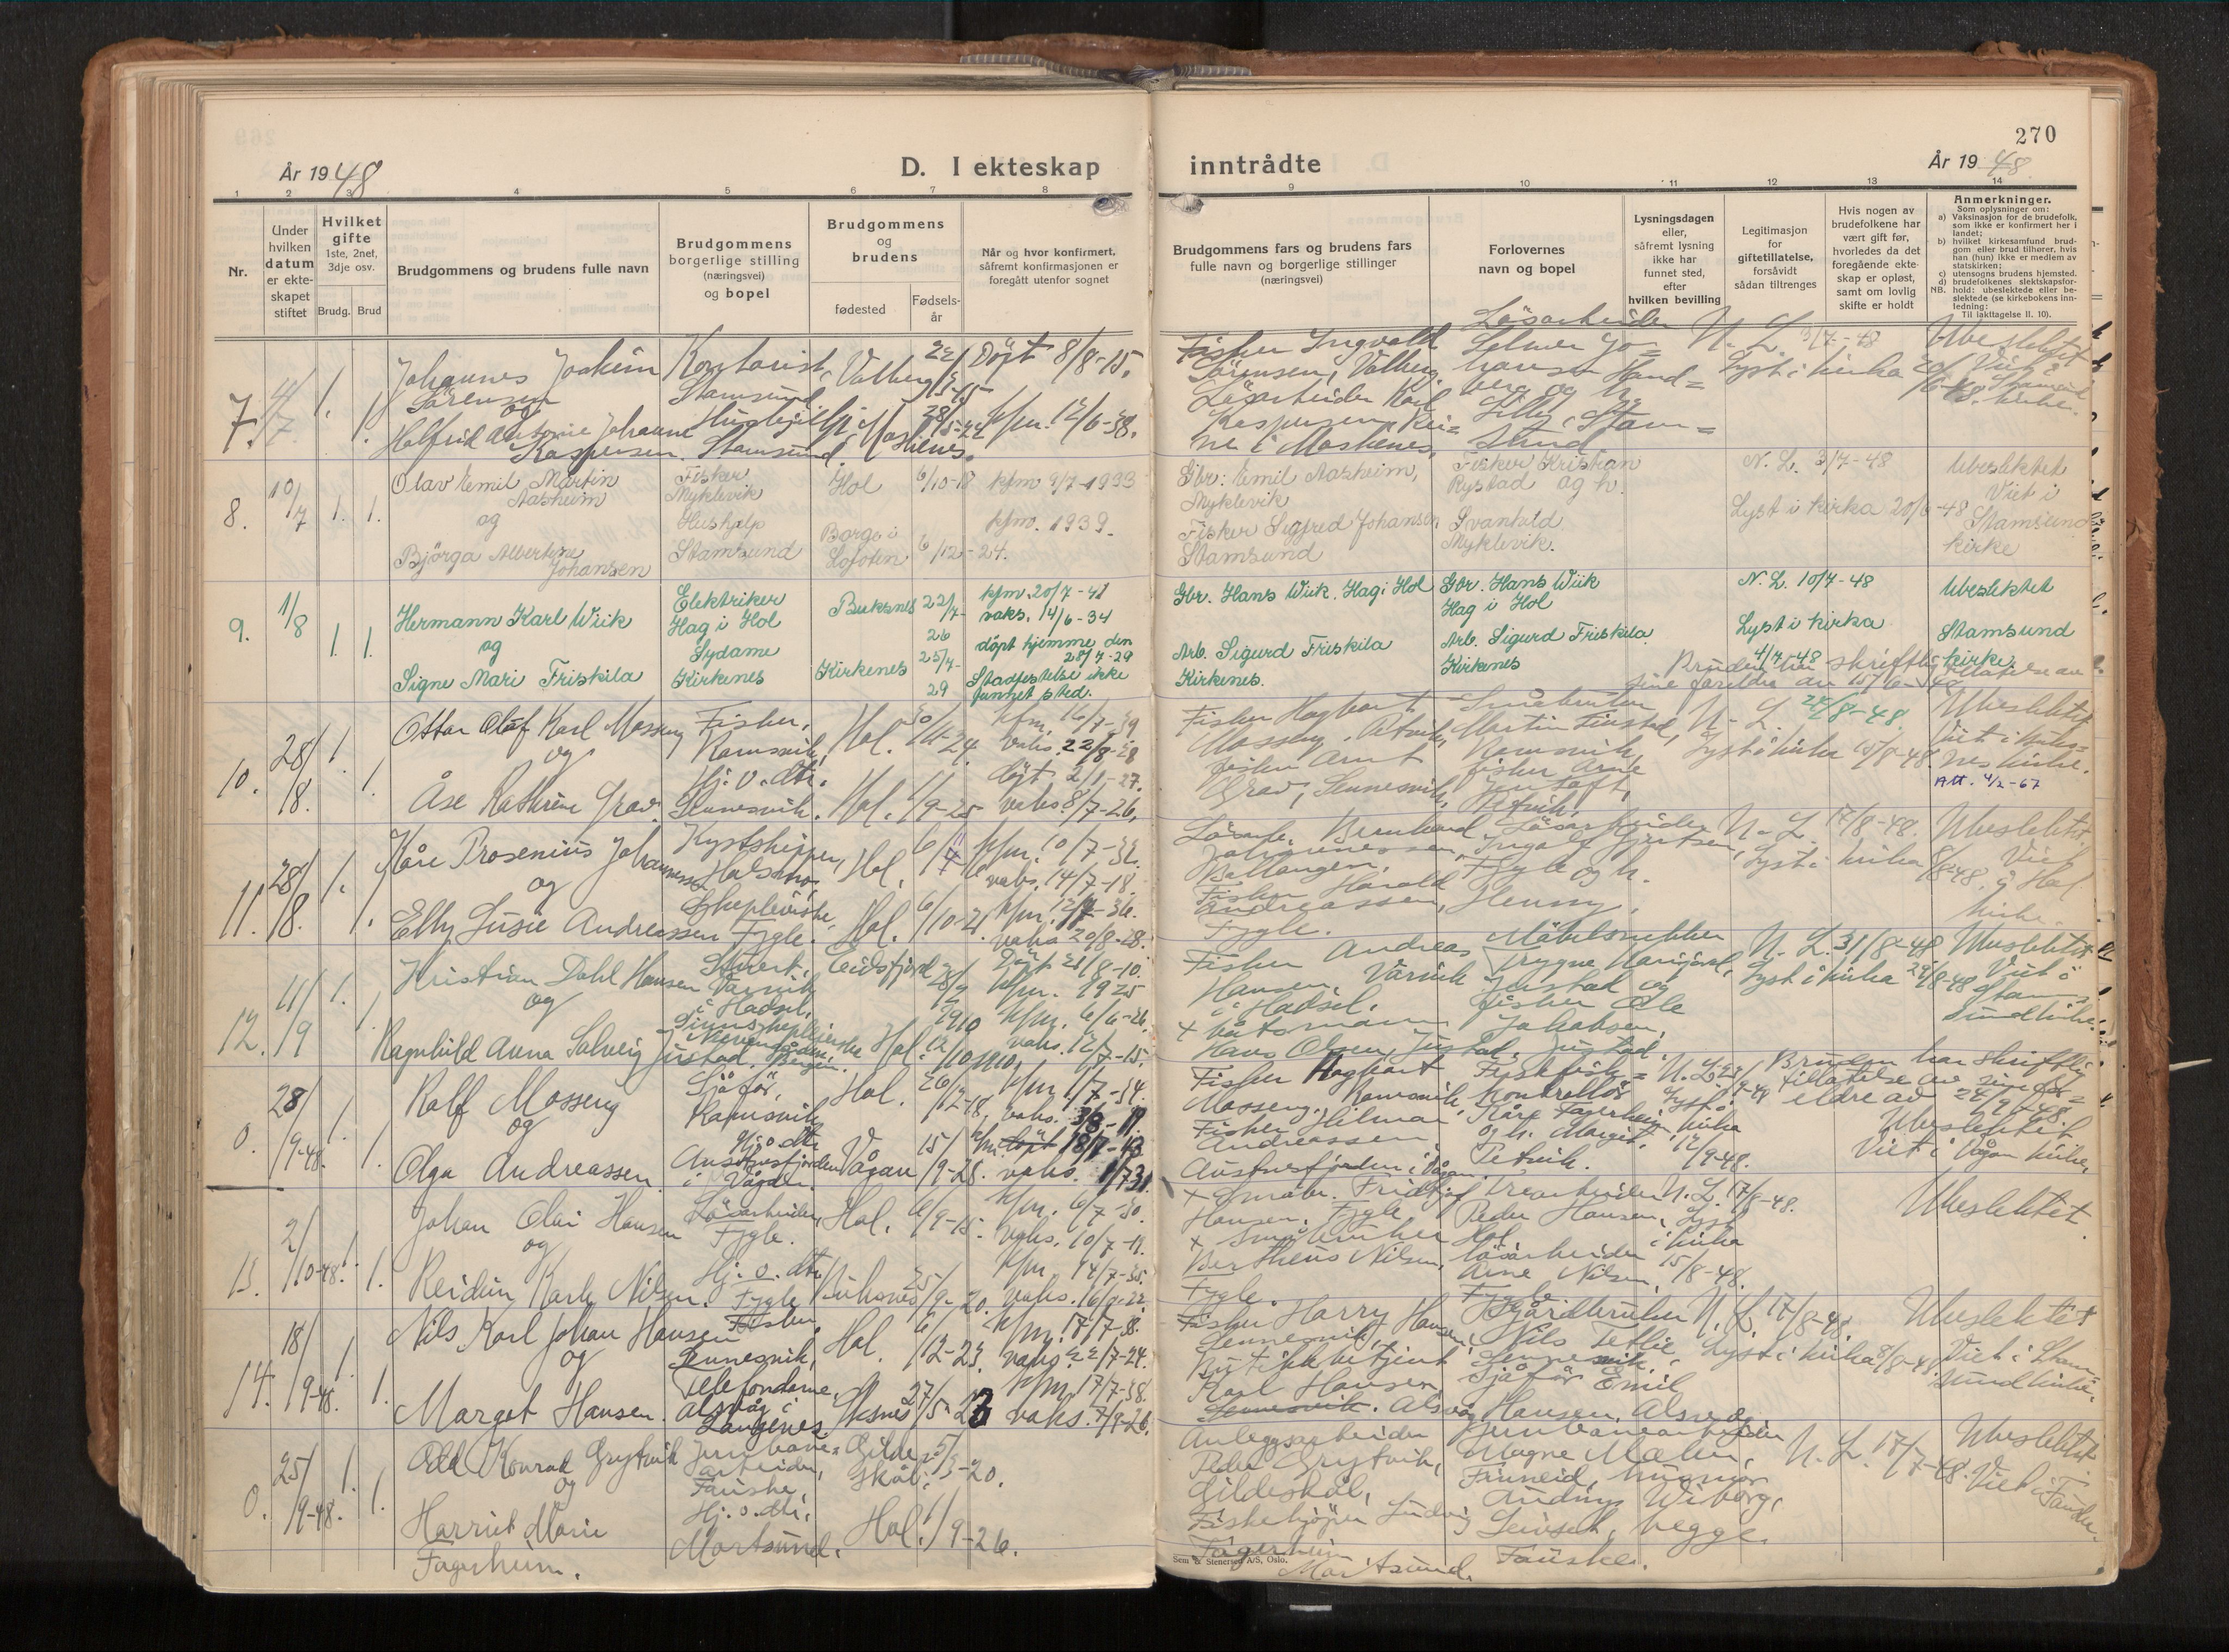 270
År 1948
D. I ekteskap
inntrådte
År 1948
1 2 3 4 5 6 7 8 9 10 11 12 13 14
Nr.
Under hvilken datum er ekteskapet stiftet
Hvilket gifte
1ste, 2net, 3dje osv.
Brudg. Brud
Brudgommens og brudens fulle navn
Brudgommens borgerlige stilling (næringsvei) og bopel
Brudgommens og brudens
fødested
Fødsels-år
Når og hvor konfirmert, såfremt konfirmasjonen er foregått utenfor sognet
Brudgommens fars og brudens fars fulle navn og borgerlige stillinger (næringsvei)
Forlovernes navn og bopel
Lysningsdagen eller, såfremt lysning ikke har funnet sted, efter hvilken bevilling
Legitimasjon for giftetillatelse, forsåvidt sådan tiltrenges
Hvis nogen av brudefolkene har vært gift før, hvorledes da det foregående ekteskap er opløst, samt om lovlig skifte er holdt
Anmerkninger.
Som oplysninger om:
a) Vaksinasjon for de brudefolk, som ikke er konfirmert her i landet;
b) hvilket kirkesamfund brudgom eller brud tilhører, hvis han (hun) ikke er medlem av statskirken;
c) utensogns brudens hjemsted.
d) brudefolkenes slektskapsforhold: ubeslektede eller beslektede (se kirkebokens innledning:
NB. Til iakttagelse II. 10).
7. 4/7 1. 1.
Johannes Joakim Sörensen
og
Halfrid Antonie Johanne Kaspersen
Kontorist, Stamsund
Stamsund
Valberg
Döpt 8/8-15.
kfm. 12/6-38.
Fisker Ingvald Sörensen, Valberg
Lösarbeider Karl Kaspersen, Reine i Moskenes
Lösarbeider
Stamsund
N. L. 3/7-48
Lyst i kirka 20/6-48.
Ubeslektet
Viet i Stamsund kirke.
8. 10/7 1. 1.
Olav Emil Martin Aasheim
og
Björga Albertine Johansen
Fisker Myklevik
Hushjelp Stamsund
Hol 6/10-18
Borge i Lofoten 6/12-24.
kfm 9/7-1933
kfm. 1939.
Gbr: Emil Aasheim, Myklevik
Fisker Sigfred Johansen Stamsund
Fisker Kristian Rystad og h. Svanhild Myklevik.
N. L. 3/7-48
Lyst i kirka 20/6-48
Ubeslektet
Viet i Stamsund kirke
9. 1/8 1. 1.
Hermann Karl Wiik
og
Signe Mari Friskila
Elektriker Hag i Hol
Sydame Kirkenes
Buksnes 22/7-26
Kirkenes 25/7-29
kfm. 20/7-41
vaks. 14/6-34
döpt hjemme den 28/7-29
Stadfestelse ikke funnet sted.
Gbr. Hans Wiik. Hag i Hol
Arb. Sigurd Friskila Kirkenes.
Gbr. Hans Wiik Hag i Hol
Arb. Sigurd Friskila Kirkenes
N. L. 10/7-48
Lyst i kirka 4/7-48
Ubeslektet
Stamsund kirke.
10. 28/8. 1. 1.
Ottar Olaf Karl Masseng
og
Åse Kathrine Grav.
Fisker, Ramsvik,
Hj. v. dtr. Sennesvik.
Hol. 30/11-24.
Hol. 11/9-25
kfm. 16/7-39
vaks. 22/8-28
döpt 2/1-27.
vaks. 8/7-26.
Fisker Hagbart Masseng, Petvik,
Fisker Arnt Grav, Sennesvik,
Småbruker Martin Finstad, Ramsvik,
Fisker Arne Justoft, Petvik.
Bruden har skriftlig tillatelse av sine foreldre av
N. L. 28/8-48.
Lyst i kirka 15/8-48.
Ubeslektet
Viet i Buksnes kirke.
Att. 4/2-67
11. 28/8. 1. 1.
Kåre Prosenius Johannessen
og
Elly Susie Andreassen
Kystskipper, Halsmo,
Fygle.
Hol. 6/4
Hol. 6/10-21
kfm. 10/7-32.
vaks. 14/7-18.
kfm. 12/7-36.
vaks 20/8-28.
Lösarb. Bernhard Johannessen, Ballangen.
Fisker Harald Andreassen, Fygle.
Lösarbeider Ingolf Gjertsen, Fygle og h. Henny.
N. L. 17/8-48.
Lyst i kirka 8/8-48.
Ubeslektet.
Viet i Hol kirke.
12. 11/9 1. 1.
Kristian Dahl Hansen
og
Ragnhild Anna Solveig Justad.
Styrert, Vårvik i Hadsel.
Bergen.
Eidsfjord 28/7 1910
Hol. 12/10 1910.
Döpt 21/8-10.
kfm. 1925
kfm. 6/6-26.
vaks. 12/7-15.
Fisker Andreas Hansen, Vårvik i Hadsel.
+ båtsmann Hans Olsen, Justad.
Möbelsnekker Trygve Justad og fisker Ole Jakobsen, Justad.
N. L. 31/8-48
Lyst i kirka 29/8-48
Ubeslektet
Viet i Stamsund kirke.
0. 28/9-48. 1. 1.
Rolf Masseng
og
Olga Andreassen
Sjåför, Ramsvik
Hj. v. dtr. Austnesfjorden i Vågan.
Hol. 26/12-18,
Vågan 15/9-28.
kfm. 1/7-34.
vaks. 3/8-19.
kfm. 18/7-43
vaks. 1/7 31.
Fisker Hagbart Masseng, Ramsvik,
Fisker Hilmar Andreassen, Austnesfjorden i Vågan
Fiskerikontrollör Kåre Fagerheim og h. Margit, Petvik.
N. L.
Lyst i kirka 12/9-48.
Bruden har skriftlig tillatelse av sine foreldre av 24/9-48.
Ubeslektet
Viet i Vågan kirke.
13. 2/10-48. 1. 1.
Johan Olai Hansen
og
Reidun Karly Nilsen.
Lösarbeider, Fygle.
Hj. v. dtr. Fygle
Hol. 6/9-15.
Buksnes 25/9-20.
kfm. 6/7-30.
vaks. 10/7-19.
kfm. 14/7-35.
vaks. 16/9-22.
+ Småbr. Fridtjof Hansen, Fygle
+ Småbruker Bertheus Nilsen, Fygle.
Trearbeider Peder Hansen, Hol.
Lösarbeider Arne Nilsen, Fygle.
N. L. 17/8-48.
Lyst i kirka 15/8-48.
Ubeslektet.
14. 18/9-48. 1. 1.
Nils Karl Johan Hansen
og
Margot Hansen.
Fisker, Sennesvik,
Telefondame, Alsvåg i Langenes.
Hol. 6/12-23.
Öksnes 27/5-23
kfm. 17/7-38.
vaks. 22/7-24.
kfm. 17/7-38.
vaks. 7/9-26.
Fisker Harry Hansen, Sennesvik,
Butikkbetjent Karl Hansen, Sennesvik. Alsvåg
Gårdbruker Nils Tetlie, Sennesvik.
Sjåför Emil Hansen, Alsvåg
N. L. 17/8-48.
Lyst i kirka 8/8-48.
Ubeslektet
Viet i Stamsund kirke.
0. 25/9-48. 1. 1.
Odd Konrad Grytvik
og
Harriet Marie Fagerheim.
Jernbanearbeider, Fauske,
Hj. v. dtr. Mortsund.
Gildeskål. 5/3-20.
Hol. 1/9-26.
Anleggsarbeider Peder Grytvik, Gildeskål,
Fiskekjöper Ludvig Fagerheim Mortsund.
Jernbanearbeider Magne Mælen, Finneid,
Audny Wiborg, begge Fauske.
N. L. 17/7-48.
Ubeslektet
Viet i Fauske.
Sem & Stenersen A/S, Oslo.